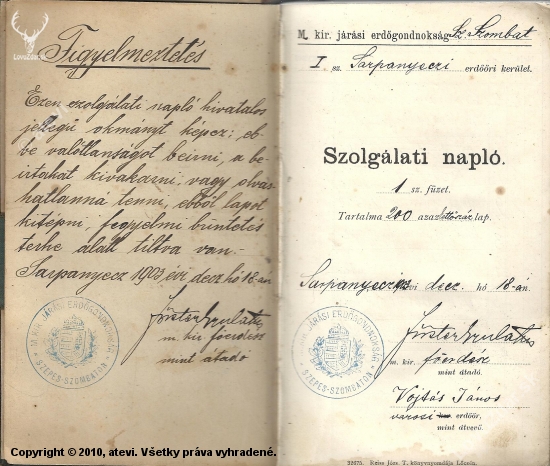 LovuZdar
Figyelmeztetés
Ezen szolgálati napló hivatalos
jellegű okmányt képez; eb-
be valótlanságot beirni, a be-
irtakat kivakarni, vagy olvas-
hatlanná tenni, ebből lapot
kitépni, fegyelmi büntetés
terhe alatt tiltva van.
Sarpanyecz 1903 évi decz hó 18-án
m. kir. főerdész
mint átadó
M. KIR. JÁRÁSI ERDŐGONDNOKSÁG
SZEPES-SZOMBATON
M. kir. járási erdőgondnokság Sz. Szombat
I sz. Sarpanyeczi erdőőri kerület.
Szolgálati napló.
1 sz. füzet.
Tartalma 200 azaz kettőszáz lap.
Sarpanyecz évi decz. hó 18-án.
M. KIR. JÁRÁSI ERDŐGONDNOKSÁG
SZEPES-SZOMBATON
m. kir. főerdész
mint átadó.
Vojtás János
városi erdőőr,
mint átvevő.
32675. Reiss Józs. T. könyvnyomdája Lőcsén.
Copyright © 2010, atevi. Všetky práva vyhradené.